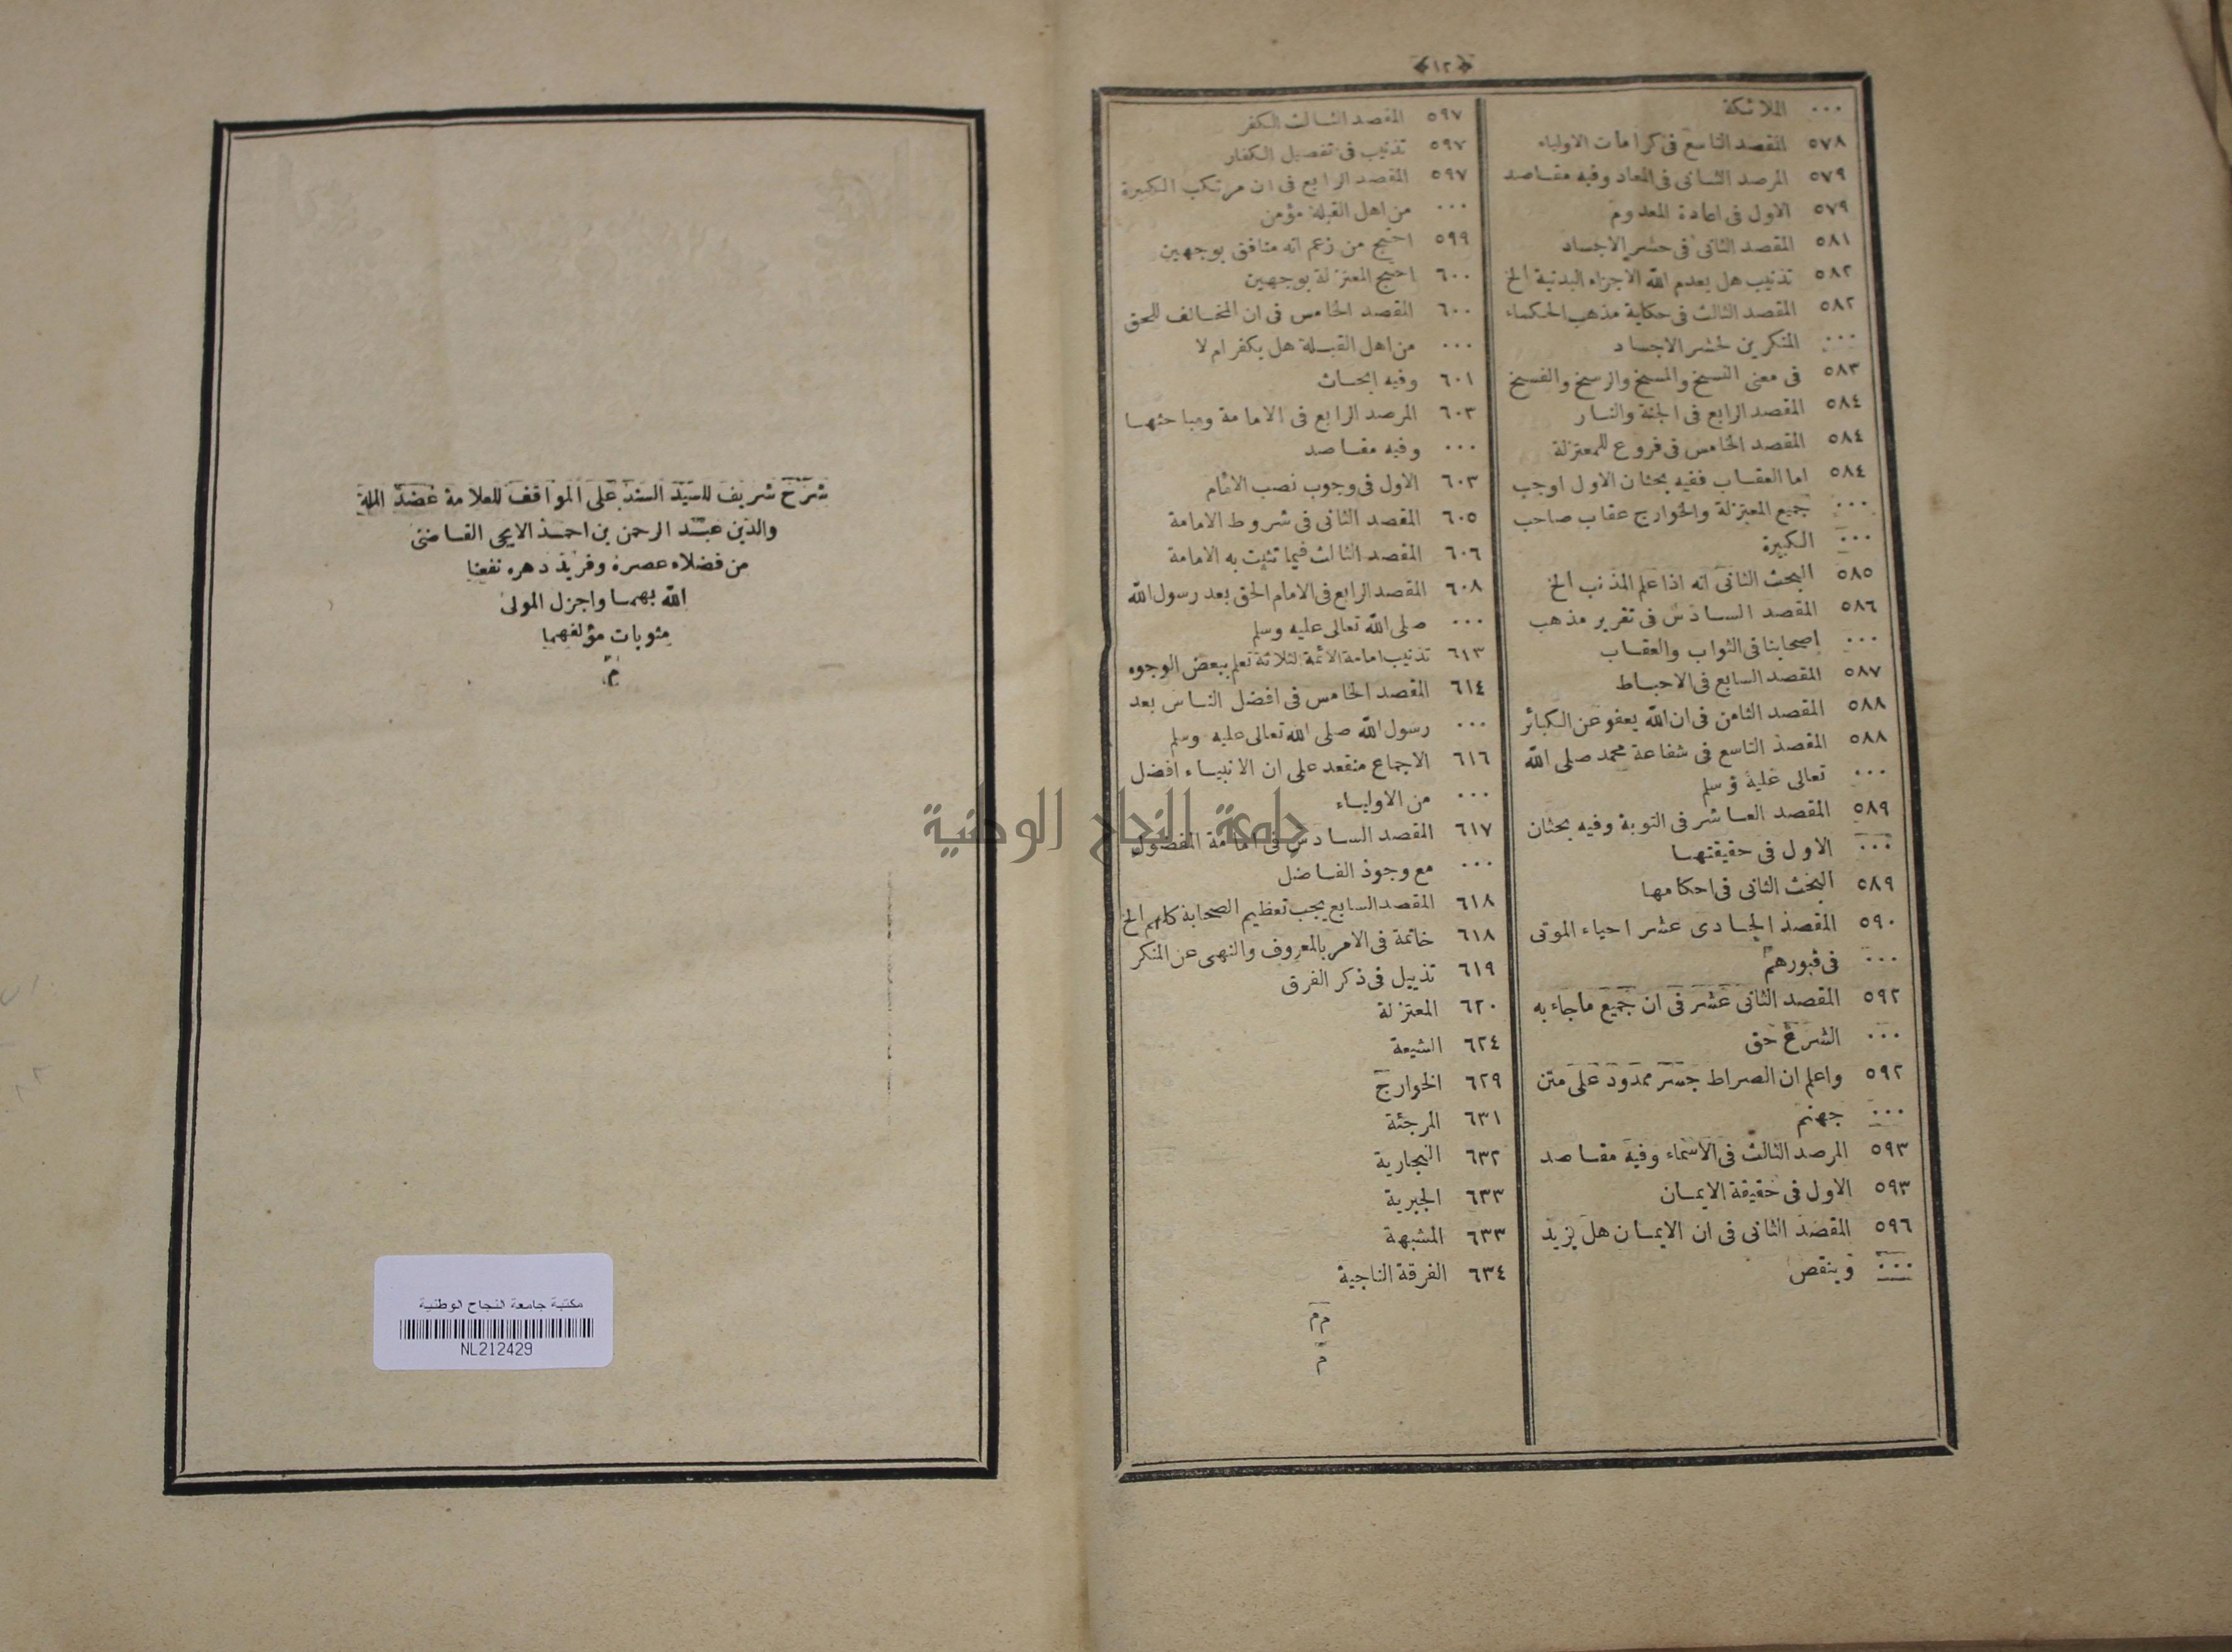 ﴿١٢﴾
... الملائكة
٥٧٨ المقصد التاسع فى كرامات الاولياء
٥٧٩ المرصد الثانى فى المعاد وفيه مقاصد
٥٧٩ الاول فى اعادة المعدوم
٥٨١ المقصد الثانى فى حشر الاجساد
٥٨٢ تذنيب هل يعدم الله الاجزاء البدنية الخ
٥٨٢ المقصد الثالث فى حكاية مذهب الحكماء
... المنكرين لحشر الاجساد
٥٨٣ فى معنى النسخ والمسخ والرسخ والفسخ
٥٨٤ المقصد الرابع فى الجنة والنار
٥٨٤ المقصد الخامس فى فروع للمعتزلة
٥٨٤ اما العقاب ففيه بحثان الاول اوجب
... جميع المعتزلة والخوارج عقاب صاحب
... الكبيرة
٥٨٥ البحث الثانى انه اذا علم المذنب الخ
٥٨٦ المقصد السادس فى تقرير مذهب
... اصحابنا فى الثواب والعقاب
٥٨٧ المقصد السابع فى الاحباط
٥٨٨ المقصد الثامن فى ان الله يعفو عن الكبائر
٥٨٨ المقصد التاسع فى شفاعة محمد صلى الله
... تعالى عليه وسلم
٥٨٩ المقصد العاشر فى التوبة وفيه بحثان
... الاول فى حقيقتها
٥٨٩ البحث الثانى فى احكامها
٥٩٠ المقصد الحادى عشر احياء الموتى
... فى قبورهم
٥٩٢ المقصد الثانى عشر فى ان جميع ماجاء به
... الشرع حق
٥٩٢ واعلم ان الصراط جسر ممدود على متن
... جهنم
٥٩٣ المرصد الثالث فى الاسماء وفيه مقاصد
٥٩٣ الاول فى حقيقة الايمان
٥٩٦ المقصد الثانى فى ان الايمان هل يزيد
... وينقص
٥٩٧ المقصد الثالث الكفر
٥٩٧ تذنيب فى تفصيل الكفار
٥٩٧ المقصد الرابع فى ان مرتكب الكبيرة
... من اهل القبلة مؤمن
٥٩٩ احتج من زعم انه منافق بوجهين
٦٠٠ احتج المعتزلة بوجهين
٦٠٠ المقصد الخامس فى ان المخالف للحق
... من اهل القبلة هل يكفر ام لا
٦٠١ وفيه ابحاث
٦٠٣ المرصد الرابع فى الامامة ومباحثها
... وفيه مقاصد
٦٠٣ الاول فى وجوب نصب الامام
٦٠٥ المقصد الثانى فى شروط الامامة
٦٠٦ المقصد الثالث فيما تثبت به الامامة
٦٠٨ المقصد الرابع فى الامام الحق بعد رسول الله
... صلى الله تعالى عليه وسلم
٦١٣ تذنيب امامة الائمة الثلاثة تعلم ببعض الوجوه
٦١٤ المقصد الخامس فى افضل الناس بعد
... رسول الله صلى الله تعالى عليه وسلم
٦١٦ الاجماع منقعد على ان الانبياء افضل
... من الاولياء
٦١٧ المقصد السادس فى امامة المفضول
... مع وجود الفاضل
٦١٨ المقصد السابع يجب تعظيم الصحابة كلهم الخ
٦١٨ خاتمة فى الامر بالمعروف والنهى عن المنكر
٦١٩ تذييل فى ذكر الفرق
٦٢٠ المعتزلة
٦٢٤ الشيعة
٦٢٩ الخوارج
٦٣١ المرجئة
٦٣٢ النجارية
٦٣٣ الجبرية
٦٣٣ المشبهة
٦٣٤ الفرقة الناجية
م م
م
جامعة النجاح الوطنية
شرح شريف للسيد السند على المواقف للعلامة عضد الملة
والدين عبد الرحمن بن احمد الايجى القاضى
من فضلاء عصره وفريد دهره نفعنا
الله بهما واجزل المولى
مثوبات مؤلفهما
م
مكتبة جامعة النجاح الوطنية
NL212429